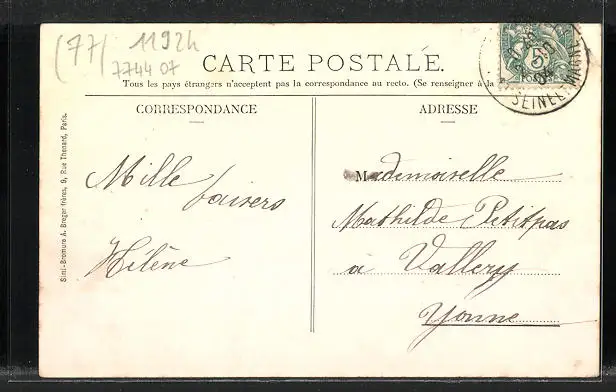 (77) 1192h
7744 07
CARTE POSTALE.
Tous les pays étrangers n'acceptent pas la correspondance au recto. (Se renseigner à la
CORRESPONDANCE
ADRESSE
Mille baisers
Hélène
Mademoiselle
Mathilde Petitpas
à Vallery
Yonne
Simi-Bromure A. Breger frères, 9, Rue Thenard, Paris.
5
SEINE